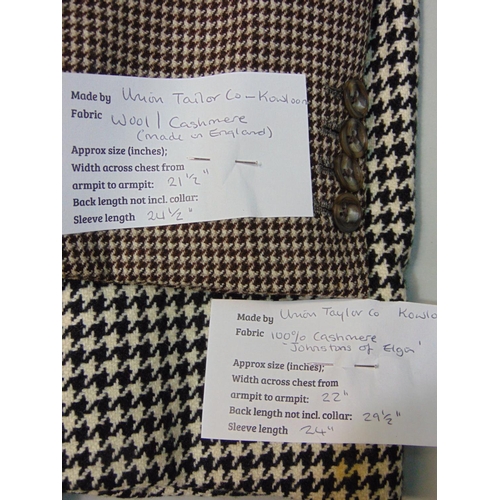 Made by Union Tailor Co - Kowloon
Fabric Wool / Cashmere
(made in England)
Approx size (inches);
Width across chest from
armpit to armpit: 21 1/2"
Back length not incl. collar:
Sleeve length 24 1/2"
Made by Union Taylor Co Kowloo
Fabric 100% Cashmere
'Johnstons of Elgin'
Approx size (inches);
Width across chest from
armpit to armpit: 22"
Back length not incl. collar: 29 1/2"
Sleeve length 24"